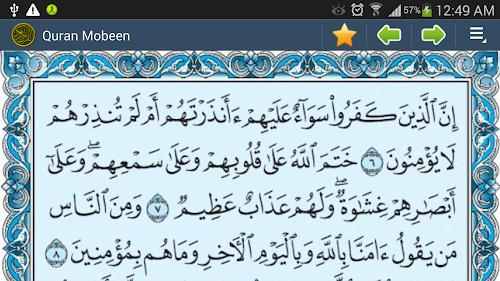 57% 12:49 AM
Quran Mobeen
إِنَّ ٱلَّذِينَ كَفَرُوا۟ سَوَآءٌ عَلَيْهِمْ ءَأَنذَرْتَهُمْ أَمْ لَمْ تُنذِرْهُمْ
لَا يُؤْمِنُونَ ٦ خَتَمَ ٱللَّهُ عَلَىٰ قُلُوبِهِمْ وَعَلَىٰ سَمْعِهِمْ ۖ وَعَلَىٰٓ
أَبْصَٰرِهِمْ غِشَٰوَةٌ ۖ وَلَهُمْ عَذَابٌ عَظِيمٌ ٧ وَمِنَ ٱلنَّاسِ
مَن يَقُولُ ءَامَنَّا بِٱللَّهِ وَبِٱلْيَوْمِ ٱلْءَاخِرِ وَمَا هُم بِمُؤْمِنِينَ ٨